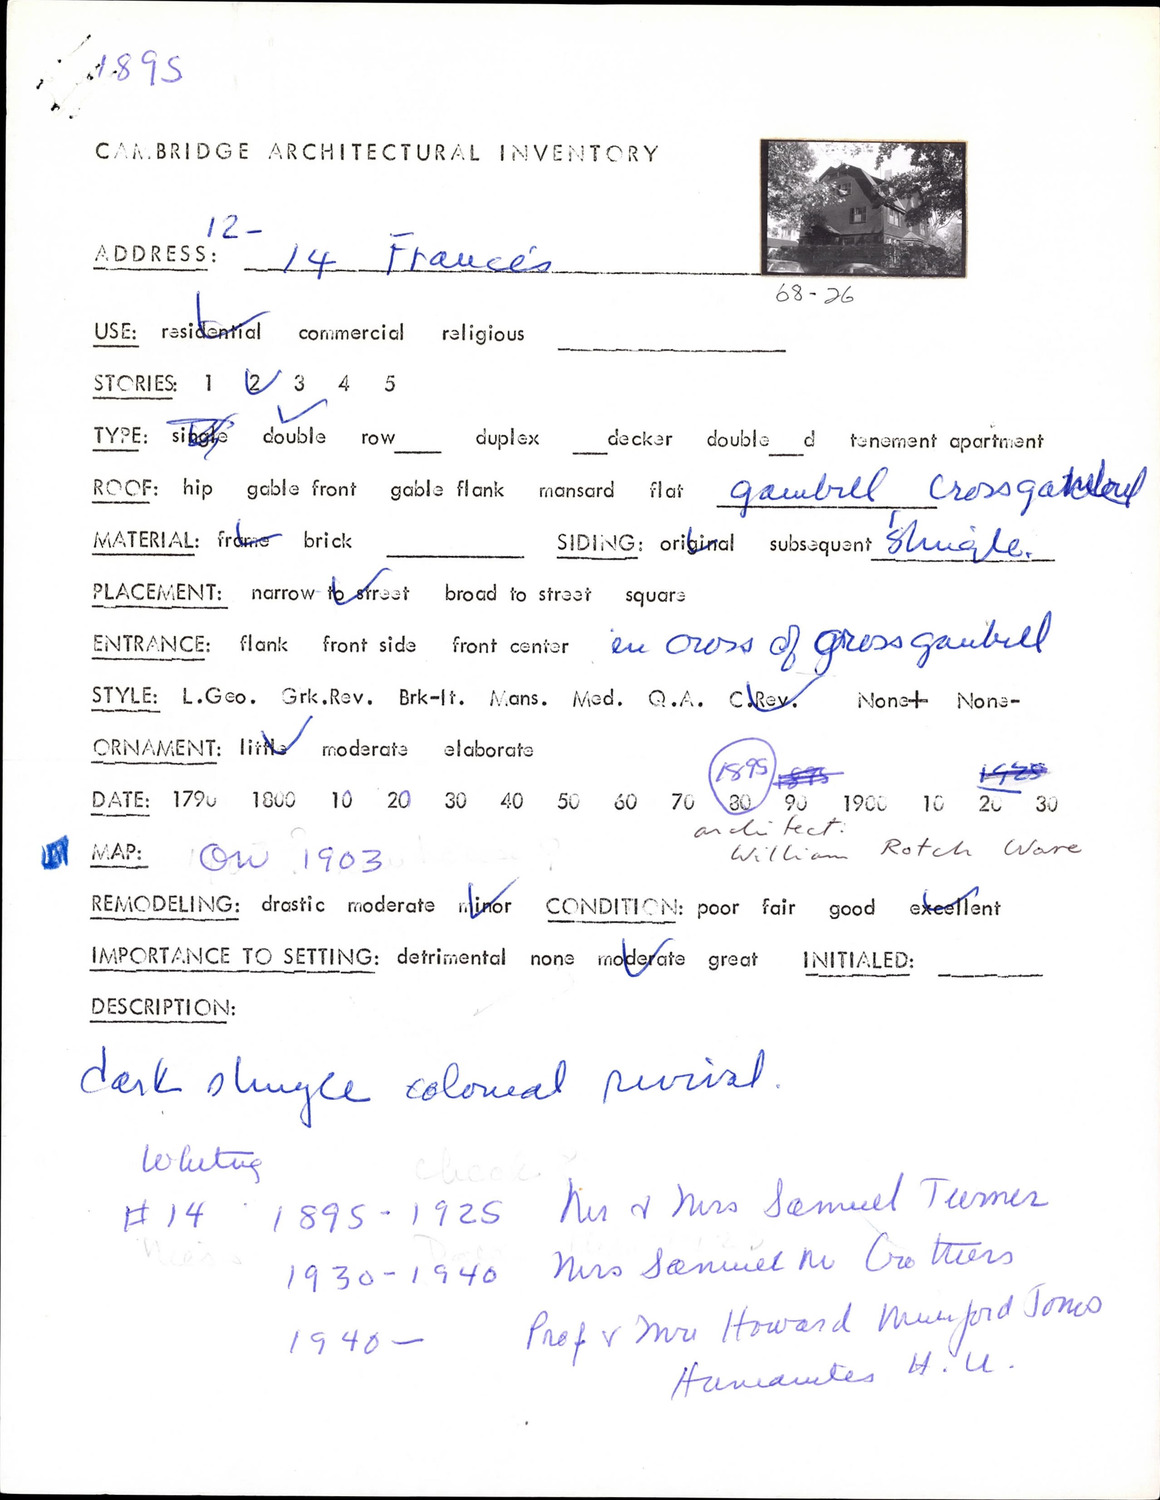 1895
CAMBRIDGE ARCHITECTURAL INVENTORY
12-
ADDRESS: 14 Francis
68-26
USE: residential commercial religious
STORIES: 1 2 3 4 5
TYPE: single double row___ duplex ___decker double___d tenement apartment
ROOF: hip gable front gable flank mansard flat gambrell Crossgambrel
MATERIAL: frame brick ______ SIDING: original subsequent Shingle.
PLACEMENT: narrow to street broad to street square
ENTRANCE: flank front side front center in cross of grossgambrell
STYLE: L.Geo. Grk.Rev. Brk-It. Mans. Med. Q.A. C.Rev. None+ None-
ORNAMENT: little moderate elaborate
1895 1895 1925
DATE: 1790 1800 10 20 30 40 50 60 70 80 90 1900 10 20 30
architect:
William Rotch Ware
MAP: On 1903
REMODELING: drastic moderate minor CONDITION: poor fair good excellent
IMPORTANCE TO SETTING: detrimental none moderate great INITIALED: ______
DESCRIPTION:
dark shingle colonial revival.
Whiting
#14 1895-1925 Mr & Mrs Samuel Turner
1930-1940 Mrs Samuel M Crothers
1940— Prof & Mrs Howard Mumford Jones
Humanites H.U.